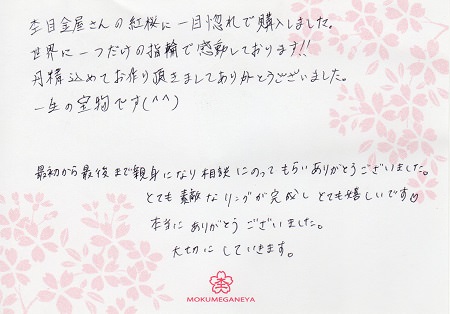 杢目金屋さんの紅桜に一目惚れで購入しました。
世界に一つだけの指輪で感動しております!!
丹精込めてお作り頂きましてありがとうございました。
一生の宝物です(^^)
最初から最後まで親身になり相談にのってもらいありがとうございました。
とても素敵なリングが完成しとても嬉しいです♡
本当にありがとうございました。
大切にしていきます。
MOKUMEGANEYA